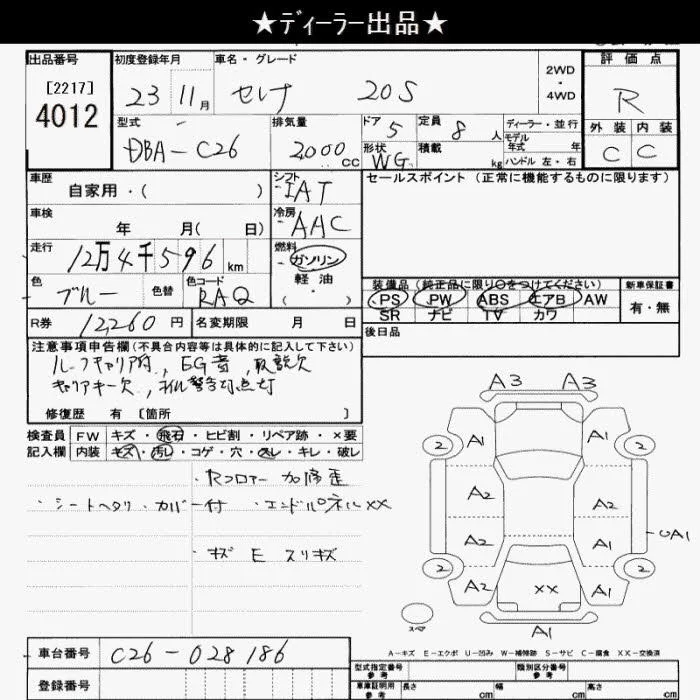 ★ディーラー出品★
出品番号 初度登録年月 車名・グレード 評価点
[2217] 23 11月 セレナ 20S 2WD・4WD R
4012
型式 排気量 ドア 5 定員 8人 ディーラー・並行 外装 内装
DBA-C26 2,000cc 形状 WG 積載 kg モデル年式 年 ハンドル 左・右 C C
車歴 シフト セールスポイント (正常に機能するものに限ります)
自家用・( ) IAT
車検 冷房
年 月( 日) AAC
走行 燃料
12万4千596km ガソリン
色 色替 色コード 軽油 装備品 (純正品に限り○をつけてください) 新車保証書
ブルー RAQ (・) PS PW ABS エアB AW 有・無
SR ナビ TV カワ
R券 12,260円 名変期限 月 日 後日品
注意事項申告欄(不具合内容等は具体的に記入して下さい)
ルーフキャリア付, EG音, 取説欠
キャリアキー欠, オイル警告灯点灯
修復歴 有 [箇所 ]
検査員 FW キズ・飛石・ヒビ割・リペア跡・×要
記入欄 内装 キズ・汚レ・コゲ・穴・スレ・キレ・破レ
・Rフロアー加修歪
・シートヘタリ・カバー付 ・エンドパネルXX
・キズ E スリキズ
A3 A3
2 A1 A1 2
A2 A2
A2 A1 UA1
2 A2 XX A1 2
スペア A1
A-キズ E-エクボ U-凹み W-補修跡 S-サビ C-腐食 XX-交換済
車台番号 C26-028186 型式指定番号 参考 類別区分番号 参考
登録番号 車庫証明用 参考 長さ cm 幅 cm 高さ cm